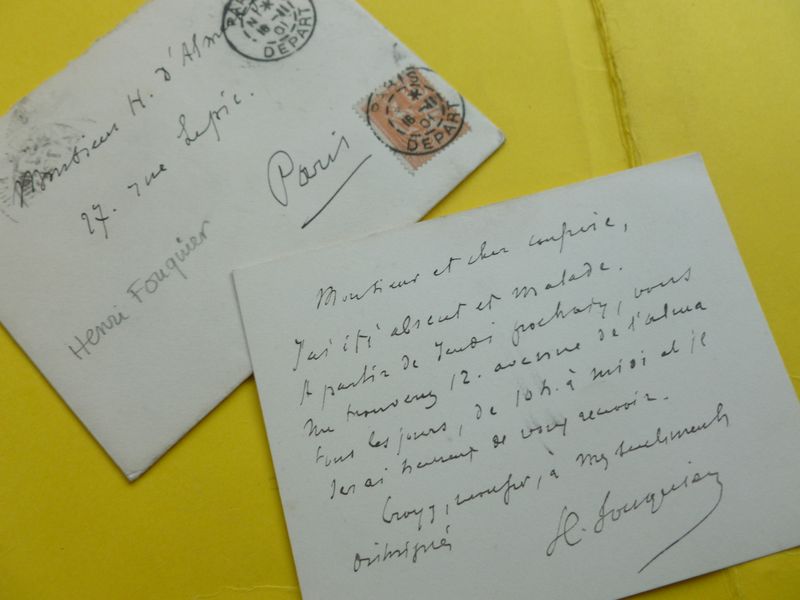 Monsieur H. d'Alm
27. rue Lepic.
Paris
Henri Fouquier
PARIS
16 -11
01
DEPART
PARIS
16 -11
01
DEPART
Monsieur et cher confrère,
J'ai été absent et malade.
A partir de Jeudi prochain, vous
me trouverez 12. avenue de l'alma
tous les jours, de 10 h. à midi et je
serai heureux de vous recevoir.
Croyez, monsieur, à mes sentiments
distingués
H. Fouquier